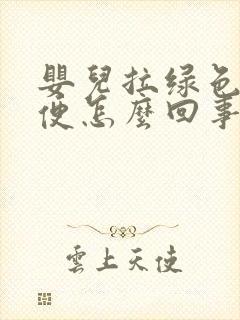 嬰兒拉绿色
便怎麼回事
雲上天使